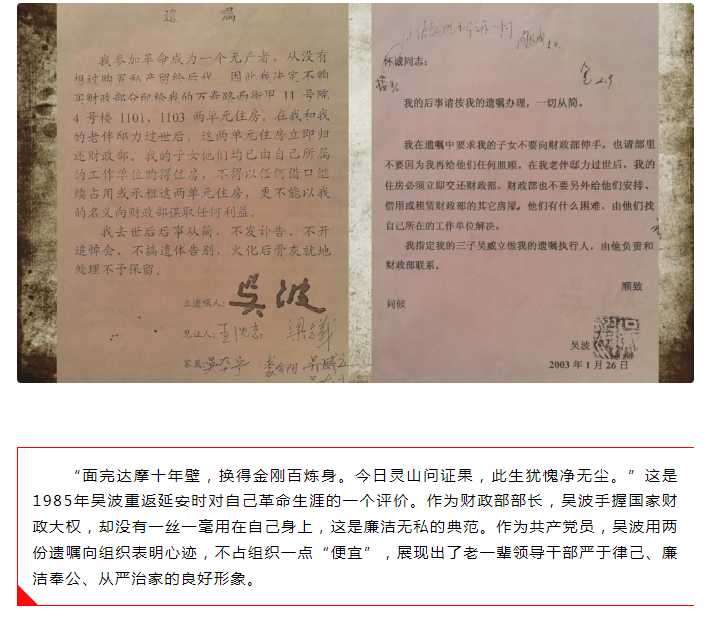 遗 嘱
我参加革命成为一个无产者，从没有
想过购置私产留给后代，因此我决定不购
买财政部分配给我的万寿路西街甲 11 号院
4 号楼 1101、1103 两单元住房。在我和我
的老伴邸力过世后，这两单元住房立即归
还财政部。我的子女他们均已由自己所属
的工作单位购得住房，不得以任何借口继
续占用或承租这两单元住房，更不能以我
的名义向财政部谋取任何利益。
我去世后后事从简，不发讣告、不开
追悼会，不搞遗体告别，火化后骨灰就地
处理不予保留。
立遗嘱人：吴波
见证人：
家属：
怀诚同志：
我的后事请按我的遗嘱办理，一切从简。
我在遗嘱中要求我的子女不要向财政部伸手，也请部里
不要因为我再给他们任何照顾。在我老伴邸力过世后，我的
住房必须立即交还财政部。财政部也不要另外给他们安排、
借用或租赁财政部的其它房屋。他们有什么困难，由他们找
自己所在的工作单位解决。
我指定我的三子吴威立做我的遗嘱执行人，由他负责和
财政部联系。
顺致
问候
吴波
2003 年 1 月 26 日
“面完达摩十年壁，换得金刚百炼身。今日灵山问证果，此生犹愧净无尘。”这是
1985年吴波重返延安时对自己革命生涯的一个评价。作为财政部部长，吴波手握国家财
政大权，却没有一丝一毫用在自己身上，这是廉洁无私的典范。作为共产党员，吴波用两
份遗嘱向组织表明心迹，不占组织一点“便宜”，展现出了老一辈领导干部严于律己、廉
洁奉公、从严治家的良好形象。